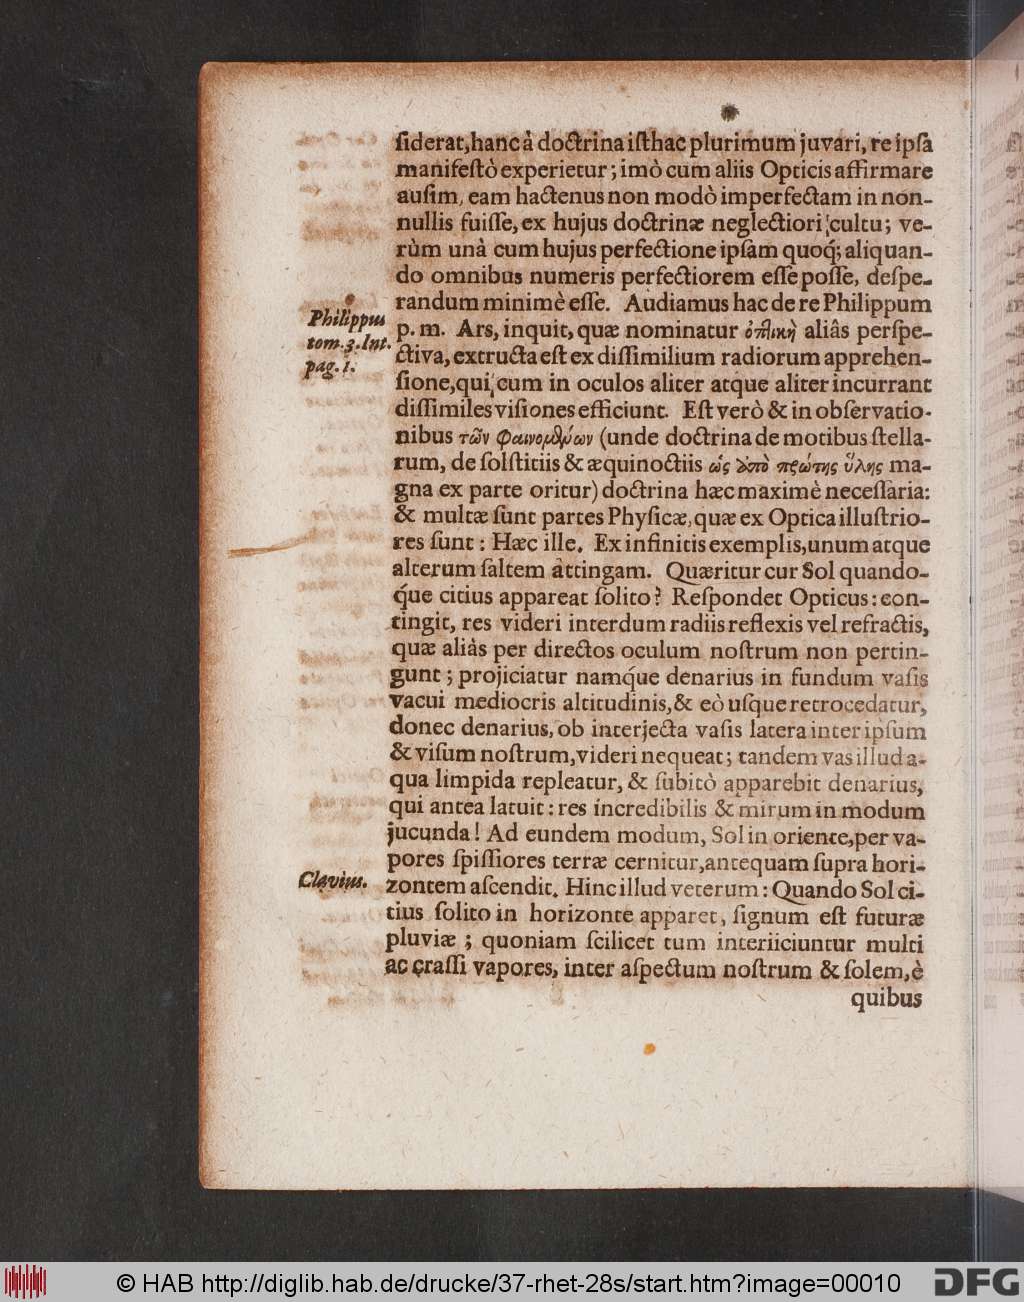 ſiderat, hanc à doctrina iſthac plurimum juvari, re ipſa
manifeſtò experietur; imò cum aliis Opticis affirmare
auſim, eam hactenus non modò imperfectam in non-
nullis fuiſſe, ex hujus doctrinæ neglectiori cultu; ve-
rùm unà cum hujus perfectione ipſam quoq́; aliquan-
do omnibus numeris perfectiorem eſſe poſſe, deſpe-
randum minimè eſſe. Audiamus hac de re Philippum
Philippus
tom. 3. Int.
pag. 1.
p. m. Ars, inquit, quæ nominatur ὀπλικὴ aliâs perſpe-
ctiva, extructa eſt ex diſſimilium radiorum apprehen-
ſione, qui cum in oculos aliter atque aliter incurrant
diſſimiles viſiones efficiunt. Eſt verò & in obſervatio-
nibus τῶν φαινομένων (unde doctrina de motibus ſtella-
rum, de ſolſtitiis & æquinoctiis ὡς ἀπὸ πρώτης ὕλης ma-
gna ex parte oritur) doctrina hæc maximè neceſſaria:
& multæ ſunt partes Phyſicæ, quæ ex Optica illuſtrio-
res ſunt: Hæc ille. Ex infinitis exemplis, unum atque
alterum ſaltem attingam. Quæritur cur Sol quando-
q́ue citius appareat ſolito? Reſpondet Opticus: con-
tingit, res videri interdum radiis reflexis vel refractis,
quæ aliàs per directos oculum noſtrum non pertin-
gunt; projiciatur namq́ue denarius in fundum vaſis
vacui mediocris altitudinis, & eò uſque retrocedatur,
donec denarius, ob interjecta vaſis latera inter ipſum
& viſum noſtrum, videri nequeat; tandem vas illud a-
qua limpida repleatur, & ſubitò apparebit denarius,
qui antea latuit: res incredibilis & mirum in modum
jucunda! Ad eundem modum, Sol in oriente, per va-
pores ſpiſſiores terræ cernitur, antequam ſupra hori-
Clavius.
zontem aſcendit. Hinc illud veterum: Quando Sol ci-
tius ſolito in horizonte apparet, ſignum eſt futuræ
pluviæ; quoniam ſcilicet tum interiiciuntur multi
ac craſſi vapores, inter aſpectum noſtrum & ſolem, è
quibus
© HAB http://diglib.hab.de/drucke/37-rhet-28s/start.htm?image=00010
DFG